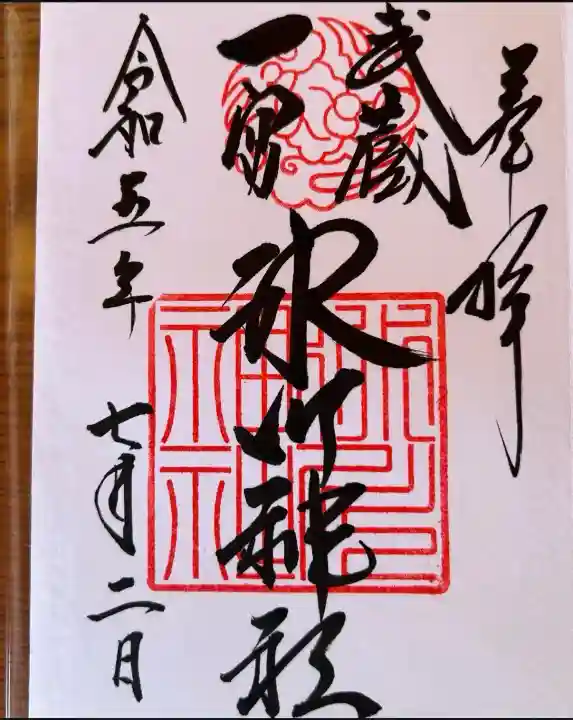 奉拝
武蔵
一宮
氷川神社
令和五年
七月二日
氷川神社